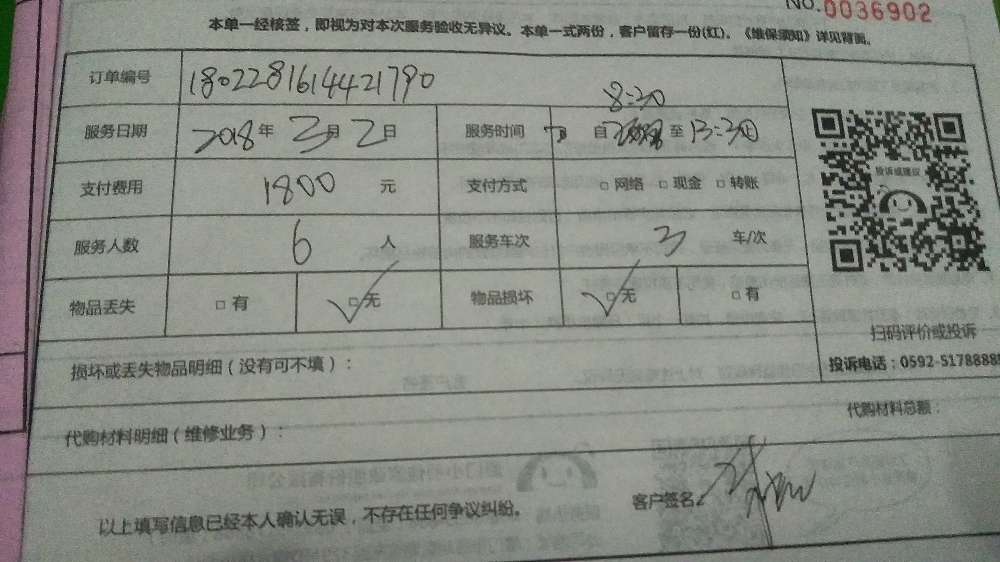 NO.0036902
本单一经核签，即视为对本次服务验收无异议。本单一式两份，客户留存一份(红)。《维保须知》详见背面。
订单编号 1802281614421790
服务日期 2018年3月2日 服务时间 自 8:30 至 13:30
支付费用 1800 元 支付方式 □ 网络 □ 现金 □ 转账
服务人数 6 人 服务车次 3 车/次
物品丢失 □ 有 □ 无 物品损坏 □ 无 □ 有
投诉或建议
扫码评价或投诉
投诉电话：0592-5178888
损坏或丢失物品明细（没有可不填）：
代购材料明细（维修业务）： 代购材料总额：
以上填写信息已经本人确认无误，不存在任何争议纠纷。 客户签名：